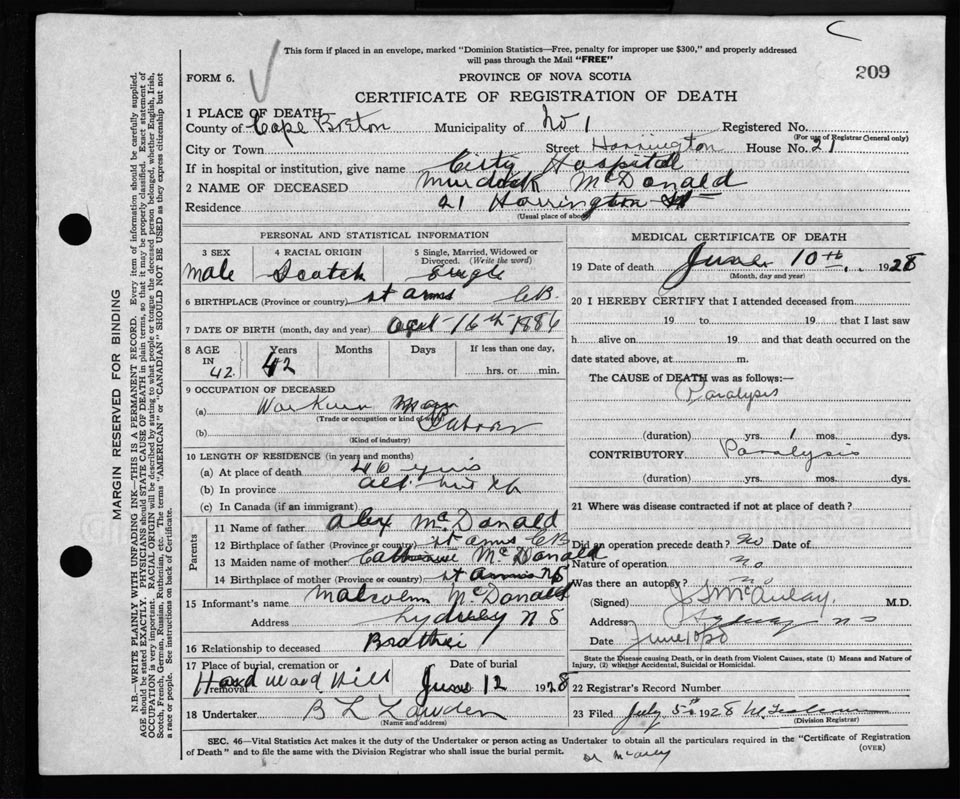 This form if placed in an envelope, marked "Dominion Statistics—Free, penalty for improper use $300," and properly addressed
will pass through the Mail "FREE"
209
FORM 6.
PROVINCE OF NOVA SCOTIA
CERTIFICATE OF REGISTRATION OF DEATH
1 PLACE OF DEATH
County of Cape Breton Municipality of No 1 Registered No.
(For use of Registrar General only)
City or Town Street Harrington House No. 21
If in hospital or institution, give name City Hospital
2 NAME OF DECEASED Murdock McDonald
Residence 21 Harrington St
(Usual place of abode)
PERSONAL AND STATISTICAL INFORMATION
3 SEX 4 RACIAL ORIGIN 5 Single, Married, Widowed or
Divorced. (Write the word)
male Scotch single
6 BIRTHPLACE (Province or country) St anns C.B.
7 DATE OF BIRTH (month, day and year) 16th 1886
8 AGE Years Months Days If less than one day,
IN
42 42 hrs. or min.
9 OCCUPATION OF DECEASED
(a) Man
(Trade or occupation or kind of work)
(b) Laborer
(Kind of industry)
10 LENGTH OF RESIDENCE (in years and months)
(a) At place of death
(b) In province
(c) In Canada (if an immigrant)
Parents
11 Name of father Alex McDonald
12 Birthplace of father (Province or country) St anns CB
13 Maiden name of mother Catherine McDonald
14 Birthplace of mother (Province or country) St Anns
15 Informant's name Malcolm McDonald
Address Sydney N S
16 Relationship to deceased Brother
17 Place of burial, cremation or Date of burial
removal Hardwood Hill June 12 1928
18 Undertaker B L
(Name and address)
MEDICAL CERTIFICATE OF DEATH
19 Date of death June 10th 1928
(Month, day and year)
20 I HEREBY CERTIFY that I attended deceased from
19 to 19 that I last saw
h alive on 19 and that death occurred on the
date stated above, at m.
The CAUSE of DEATH was as follows:—
Paralysis
(duration) yrs. 1 mos. dys.
CONTRIBUTORY Paralysis
(duration) 1 yrs. mos. dys.
21 Where was disease contracted if not at place of death?
Did an operation precede death? no Date of
Nature of operation no
Was there an autopsy? no
(Signed) McAulay M.D.
Address Sydney N S
Date June 10
State the Disease causing Death, or in death from Violent Causes, state (1) Means and Nature of
Injury, (2) whether Accidental, Suicidal or Homicidal.
22 Registrar's Record Number
23 Filed July 5th 1928
(Division Registrar)
SEC. 46—Vital Statistics Act makes it the duty of the Undertaker or person acting as Undertaker to obtain all the particulars required in the "Certificate of Registration
of Death" and to file the same with the Division Registrar who shall issue the burial permit.
(OVER)
MARGIN RESERVED FOR BINDING
N.B.—WRITE PLAINLY WITH UNFADING INK—THIS IS A PERMANENT RECORD. Every item of information should be carefully supplied.
AGE should be stated EXACTLY. PHYSICIANS should STATE CAUSE OF DEATH in plain terms, so that it may be properly classified. Exact statement of
OCCUPATION is very important. RACIAL ORIGIN will be described by stating to what people or tongue the deceased person belonged, whether English, Irish,
Scotch, French, German, Russian, Ruthenian, etc. The terms "AMERICAN" or "CANADIAN" SHOULD NOT BE USED as they express citizenship but not
a race or people. See instructions on back of Certificate.